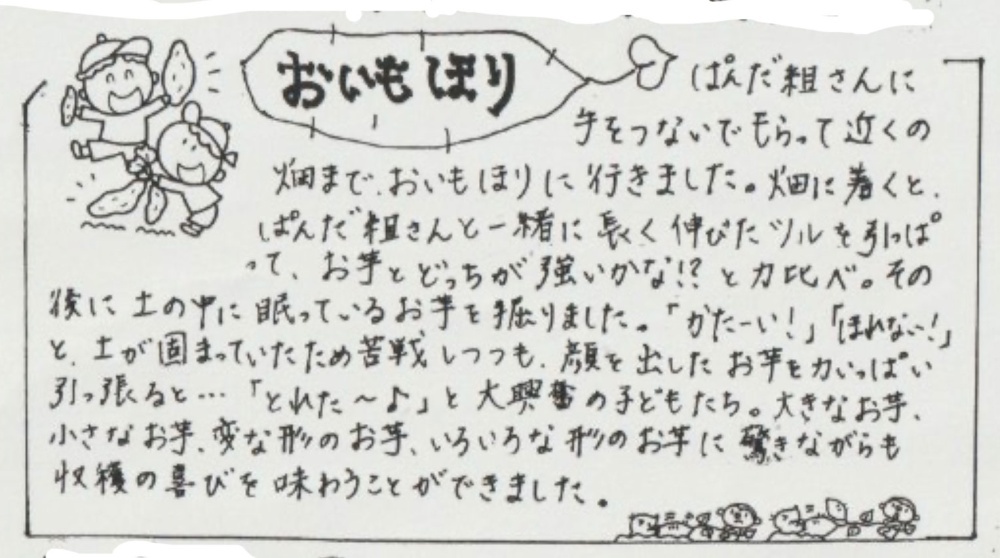 おいもほり
ぱんだ組さんに
手をつないでもらって近くの
畑まで、おいもほりに行きました。畑に着くと、
ぱんだ組さんと一緒に長く伸びたツルを引っぱ
って、お芋とどっちが強いかな!?と力比べ。その
後に土の中に眠っているお芋を掘りました。「かたーい!」「ほれない!」
と、土が固まっていたため苦戦しつつも、顔を出したお芋を力いっぱい
引っ張ると…「とれた~♪」と大興奮の子どもたち。大きなお芋、
小さなお芋、変な形のお芋、いろいろな形のお芋に驚きながらも
収穫の喜びを味わうことができました。